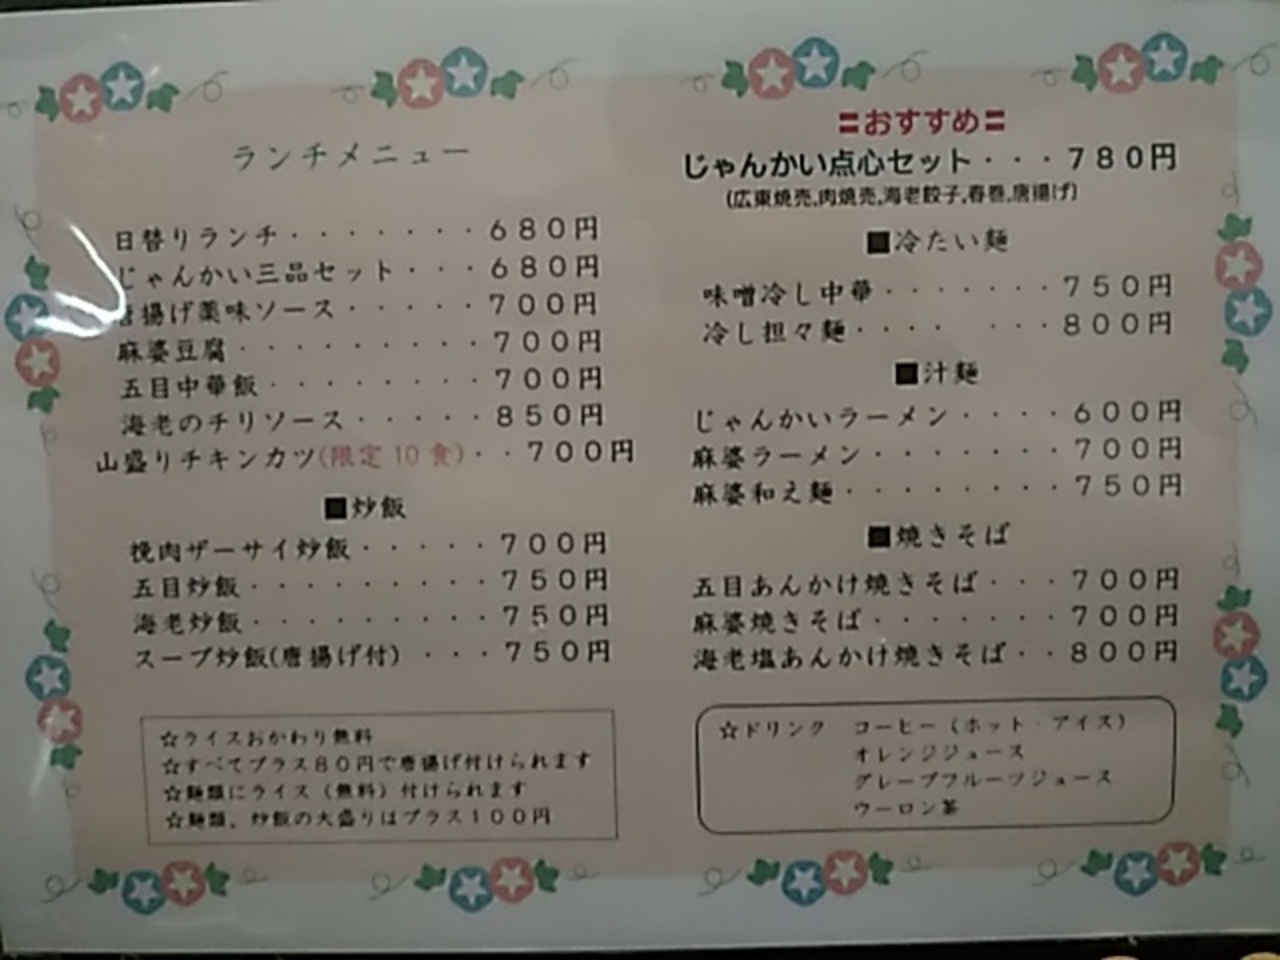 ランチメニュー
日替りランチ・・・・・・・680円
じゃんかい三品セット・・・680円
唐揚げ薬味ソース・・・・・700円
麻婆豆腐・・・・・・・・・700円
五目中華飯・・・・・・・・700円
海老のチリソース・・・・・850円
山盛りチキンカツ(限定10食)・・700円
■炒飯
挽肉ザーサイ炒飯・・・・・700円
五目炒飯・・・・・・・・・750円
海老炒飯・・・・・・・・・750円
スープ炒飯(唐揚げ付)・・・750円
☆ライスおかわり無料
☆すべてプラス80円で唐揚げ付けられます
☆麺類にライス（無料）付けられます
☆麺類、炒飯の大盛りはプラス100円
〓おすすめ〓
じゃんかい点心セット・・・780円
(広東焼売,肉焼売,海老餃子,春巻,唐揚げ)
■冷たい麺
味噌冷し中華・・・・・・・750円
冷し担々麺・・・・ ・・・800円
■汁麺
じゃんかいラーメン・・・・600円
麻婆ラーメン・・・・・・・700円
麻婆和え麺・・・・・・・・750円
■焼きそば
五目あんかけ焼きそば・・・700円
麻婆焼きそば・・・・・・・700円
海老塩あんかけ焼きそば・・800円
☆ドリンク コーヒー（ホット・アイス）
オレンジジュース
グレープフルーツジュース
ウーロン茶